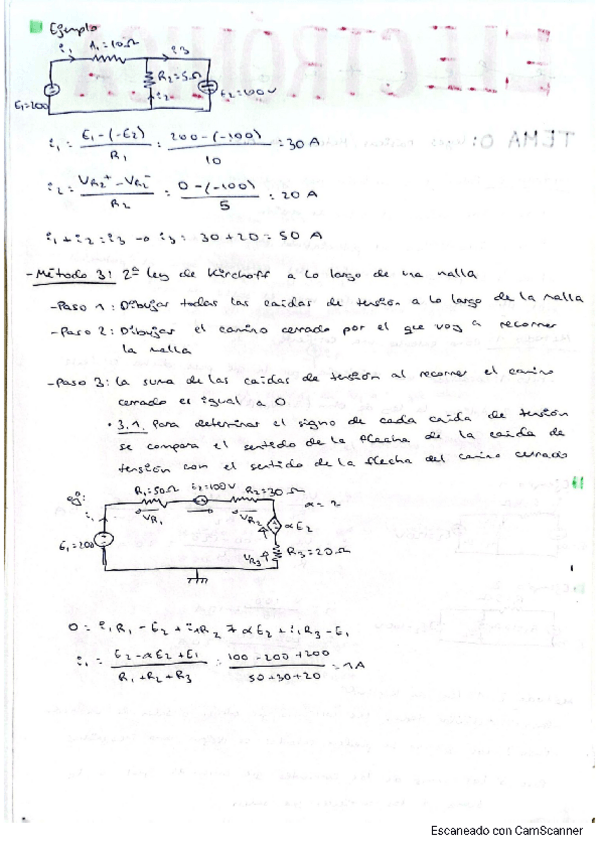 Ejemplo
i1 R1=10Ω i3
R2=5Ω
E1=200 i2 E2=100V
i1 = E1-(-E2) / R1 = 200-(-100) / 10 = 30 A
i2 = VR2+ - VR2- / R2 = 0-(-100) / 5 = 20 A
i1 + i2 = i3 → i3 = 30 + 20 = 50 A
- Método 3: 2ª ley de Kirchoff a lo largo de una malla
- Paso 1: Dibujar todas las caídas de tensión a lo largo de la malla
- Paso 2: Dibujar el camino cerrado por el que voy a recorrer
la malla
- Paso 3: la suma de las caídas de tensión al recorrer el camino
cerrado es igual a 0
• 3.1. Para determinar el signo de cada caída de tensión
se compara el sentido de la flecha de la caída de
tensión con el sentido de la flecha del camino cerrado
ej: R1=50Ω =100V R2=30Ω
α=2
i1 VR1 VR2 αE2
E1=200 VR3 R3=20Ω
0 = i1R1 - E2 + i1R2 + αE2 + i1R3 - E1
i1 = E2-αE2+E1 / R1+R2+R3 = 100-200+200 / 50+30+20 = 1A
Escaneado con CamScanner